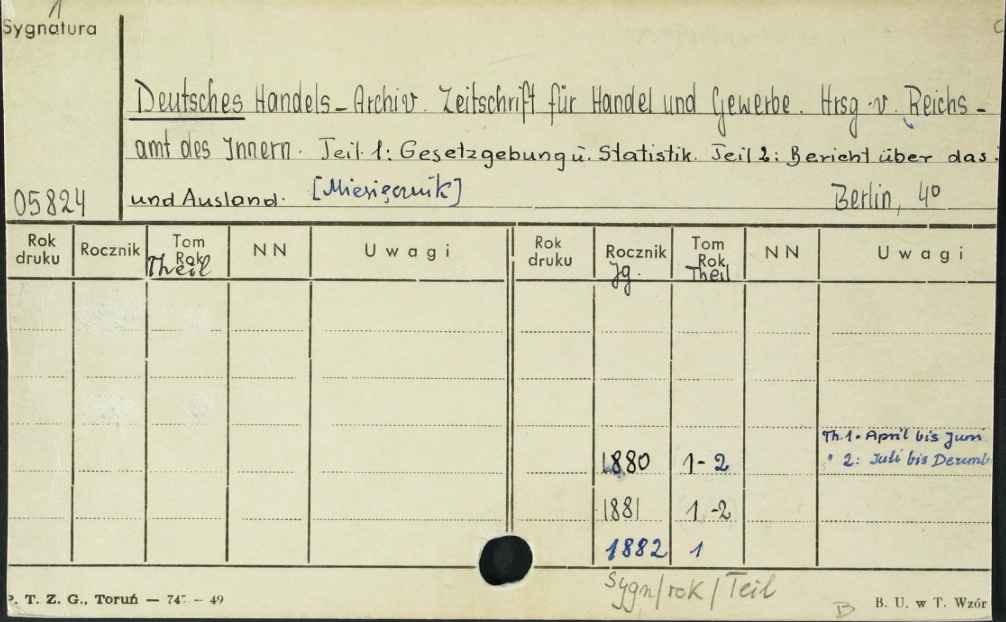 1
Sygnatura
Deutsches Handels-Archiv. Zeitschrift für Handel und Gewerbe. Hrsg. v. Reichs-
amt des Innern. Teil 1: Gesetzgebung u. Statistik. Teil 2: Bericht über das
05824 und Ausland. [Miesięcznik] Berlin, 4°
Rok druku Rocznik Tom Rok Theil NN Uwagi Rok druku Rocznik Jg. Tom Rok Theil NN Uwagi
Th. 1. April bis Juni
1880 1-2 " 2: Juli bis Dezemb
1881 1-2
1882 1
Sygn/rok/Teil
P. T. Z. G., Toruń — 747 — 49 B B. U. w T. Wzór